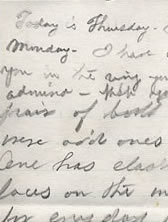 Today is Thursday.
Monday. I have
you in the way you
admire – 
pair of boots
were odd ones
One has elas
laces on the
for every day